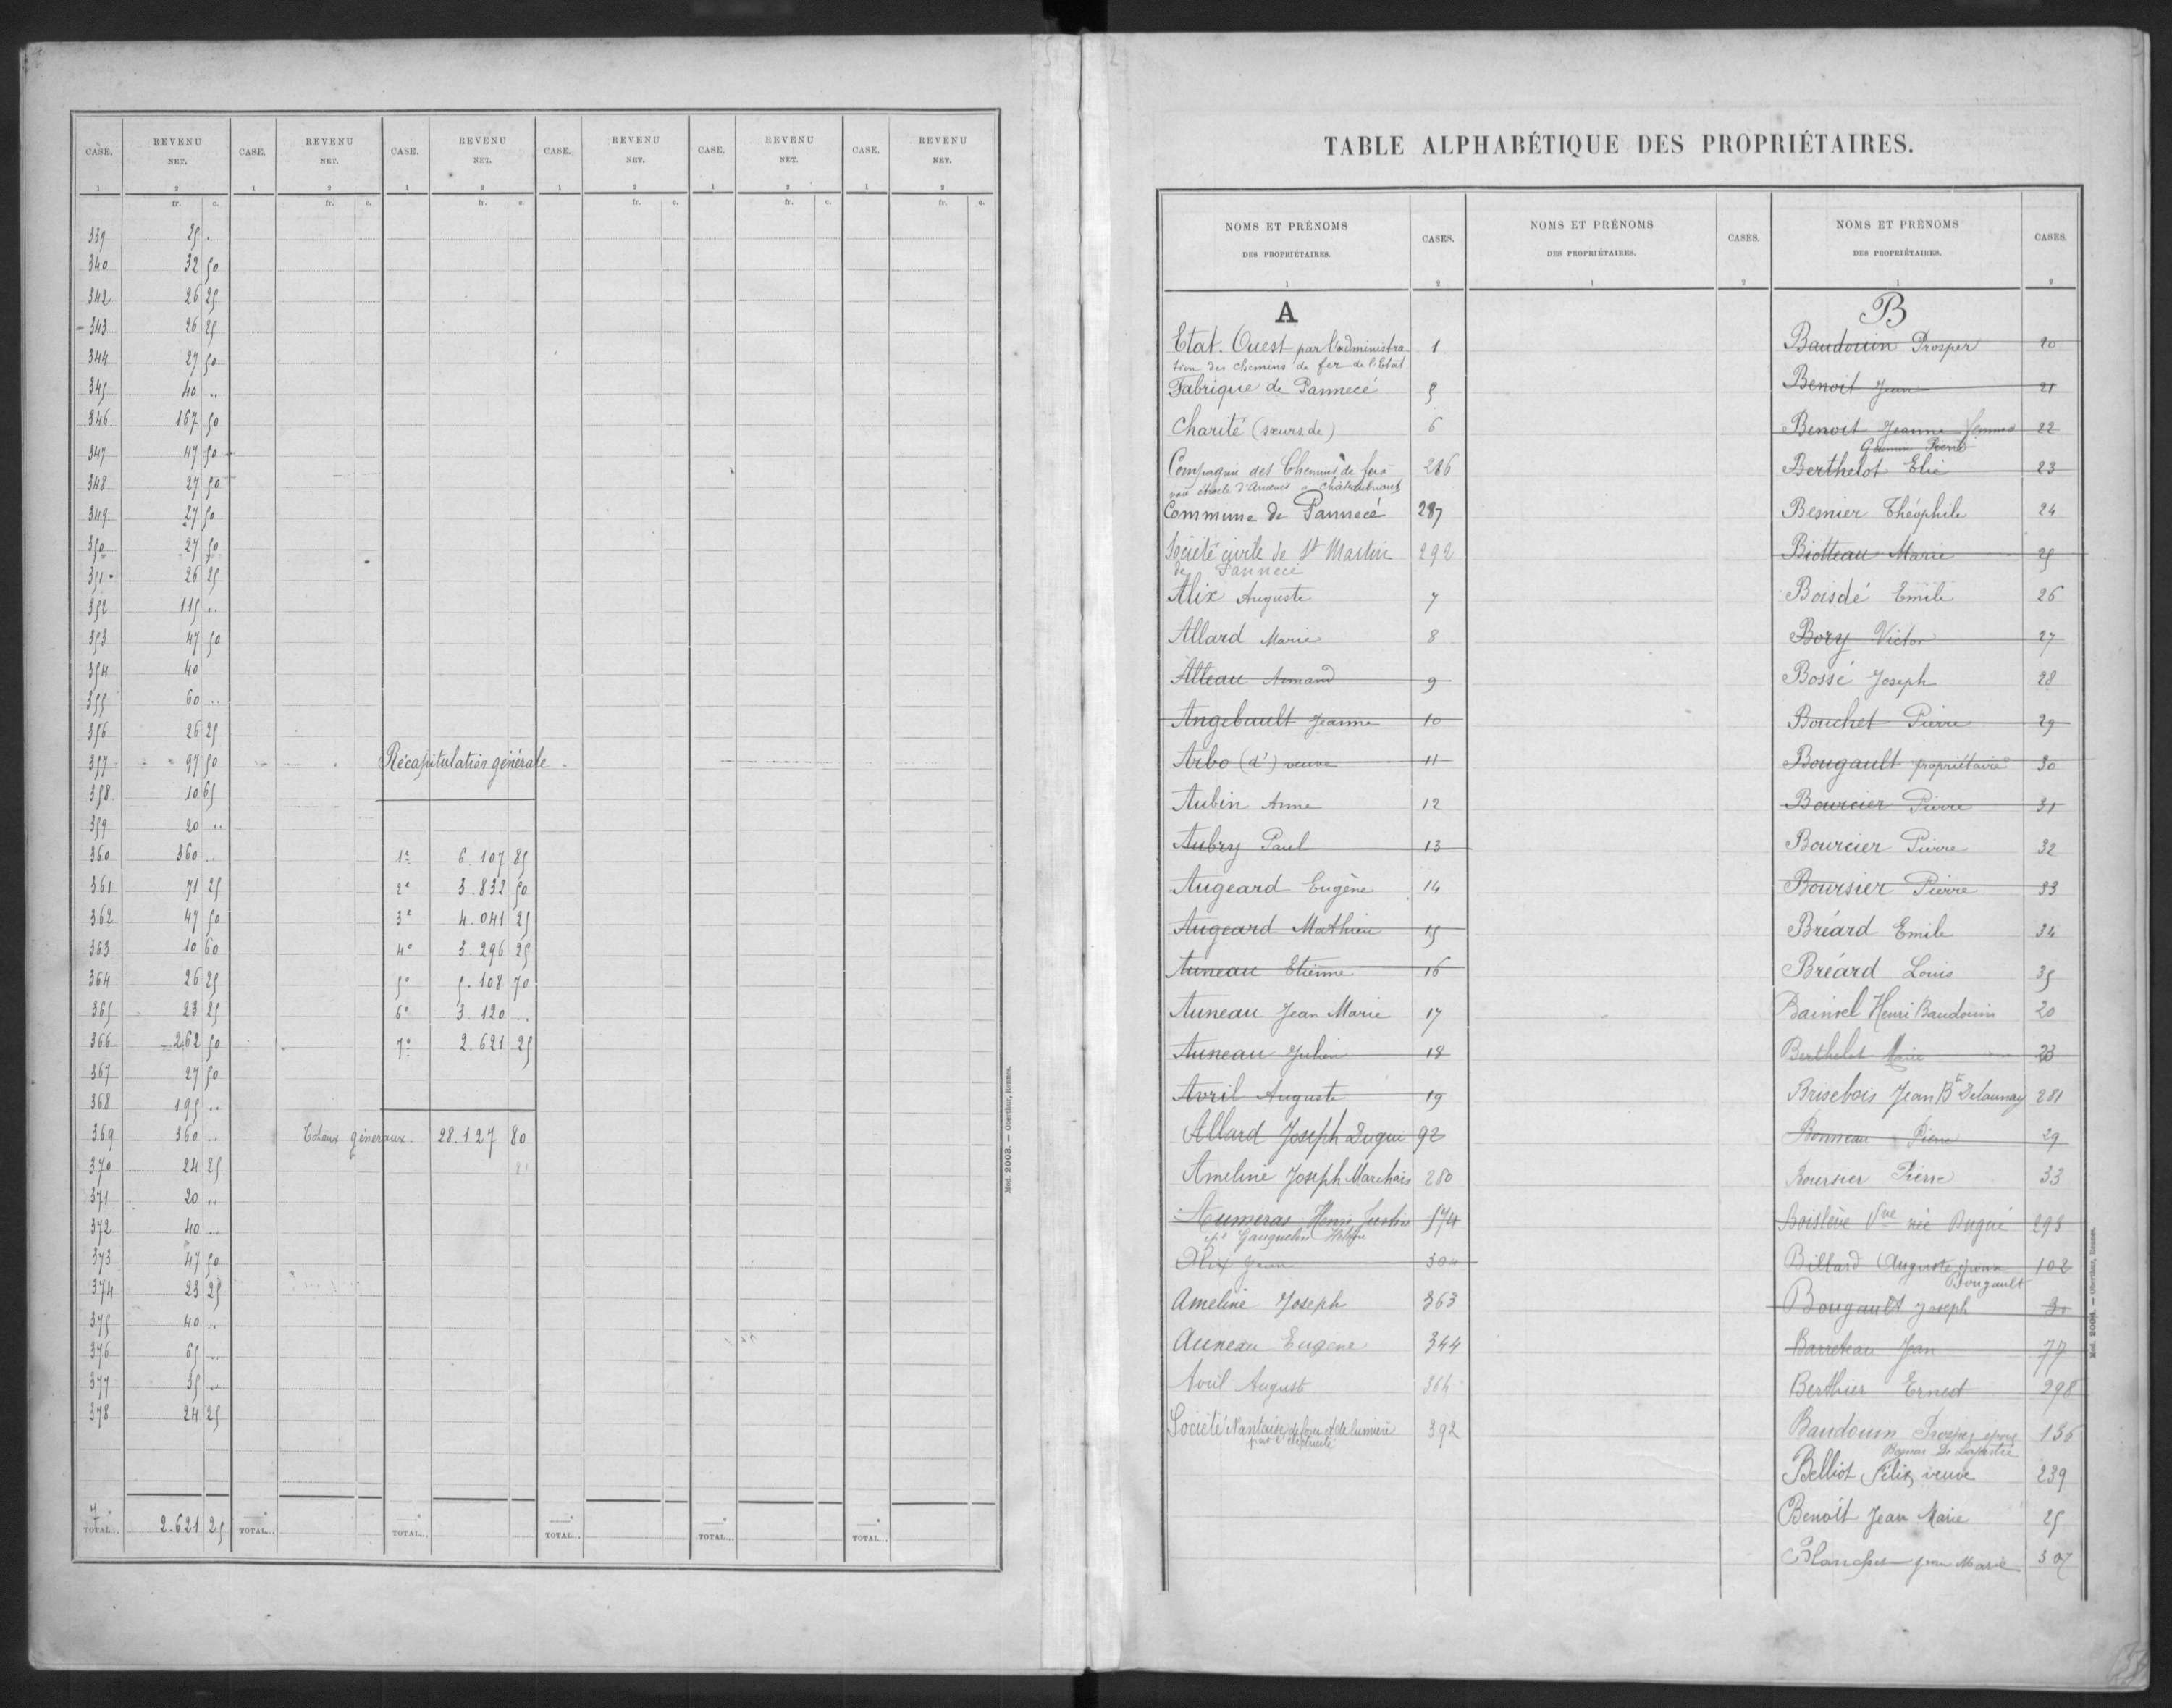 CASE. REVENU NET. CASE. REVENU NET. CASE. REVENU NET. CASE. REVENU NET. CASE. REVENU NET. CASE. REVENU NET.
1 2 1 2 1 2 1 2 1 2 1 2
fr. c. fr. c. fr. c. fr. c. fr. c. fr. c.
339 25 .
340 32 50
342 26 25
343 26 25
344 27 50
345 40 ..
346 167 50
347 47 50
348 27 50
349 27 50
350 27 50
351 26 25
352 115 ..
353 47 50
354 40
355 60 ..
356 26 25
357 97 50 Récapitulation générale
358 10 65
359 20 ..
360 360 .. 1° 6.107 85
361 71 25 2° 3.832 50
362 47 50 3° 4.041 25
363 10 60 4° 3.296 25
364 26 25 5° 5.108 70
365 23 25 6° 3.120 ..
366 262 50 7° 2.621 25
367 27 50
368 195 ..
369 360 .. Totaux généraux 28.127 80
370 24 25
371 20 ..
372 40 ..
373 47 50
374 23 25
375 40 ..
376 65 ..
377 35 ..
378 24 25
7° TOTAL.. 2.621 25 TOTAL... TOTAL... TOTAL... TOTAL... TOTAL...
Mod. 2003. — Oberthur, Rennes.
TABLE ALPHABÉTIQUE DES PROPRIÉTAIRES.
NOMS ET PRÉNOMS DES PROPRIÉTAIRES. CASES. NOMS ET PRÉNOMS DES PROPRIÉTAIRES. CASES. NOMS ET PRÉNOMS DES PROPRIÉTAIRES. CASES.
1 2 1 2 1 2
A
Etat. Ouest par l'administra- 1
tion des chemins de fer de l'Etat
Fabrique de Pannecé 5
Charité (sœurs de) 6
Compagnie des Chemins de fer à 286
voie étroite d'Ancenis à Châteaubriant
Commune de Pannecé 287
Société civile de St Martin 292
de Pannecé
Alix Auguste 7
Allard Marie 8
Alleau Armand 9
Angebault Jeanne 10
Arbo (d') veuve 11
Aubin Anne 12
Aubry Paul 13
Augeard Eugène 14
Augeard Mathieu 15
Auneau Etienne 16
Auneau Jean Marie 17
Auneau Julien 18
Avril Auguste 19
Allard Joseph Dugué 92
Ameline Joseph Marchais 280
Aumeras Henri Justin 174
Gauquelin
Alix Jean 300
Ameline Joseph 363
Auneau Eugène 344
Avril August 364
Société Nantaise de force et de lumière 392
par électricité
B
Baudouin Prosper 20
Benoit Jean 21
Benoit Jeanne femme 22
Pierre
Berthelot Elie 23
Besnier Théophile 24
Biotteau Marie 25
Boisdé Emile 26
Bory Victor 27
Bossé Joseph 28
Bouchet Pierre 29
Bougault propriétaire 30
Bourcier Pierre 31
Bourcier Pierre 32
Boursier Pierre 33
Bréard Emile 34
Bréard Louis 35
Bainvel Henri Baudouin 20
Berthelot Marie 23
Brisebois Jean Bte Delaunay 281
Bonneau Pierre 29
Boursier Pierre 33
Boislève Vve née Dugué 295
Billard Auguste époux 102
Bougault
Bougault Joseph 30
Barreteau Jean 77
Berthier Ernest 298
Baudouin Prosper époux 136
Belliot Félix, veuve 239
Benoît Jean Marie 25
Blanchet Jean Marie 307
Mod. 2004. — Oberthur, Rennes.